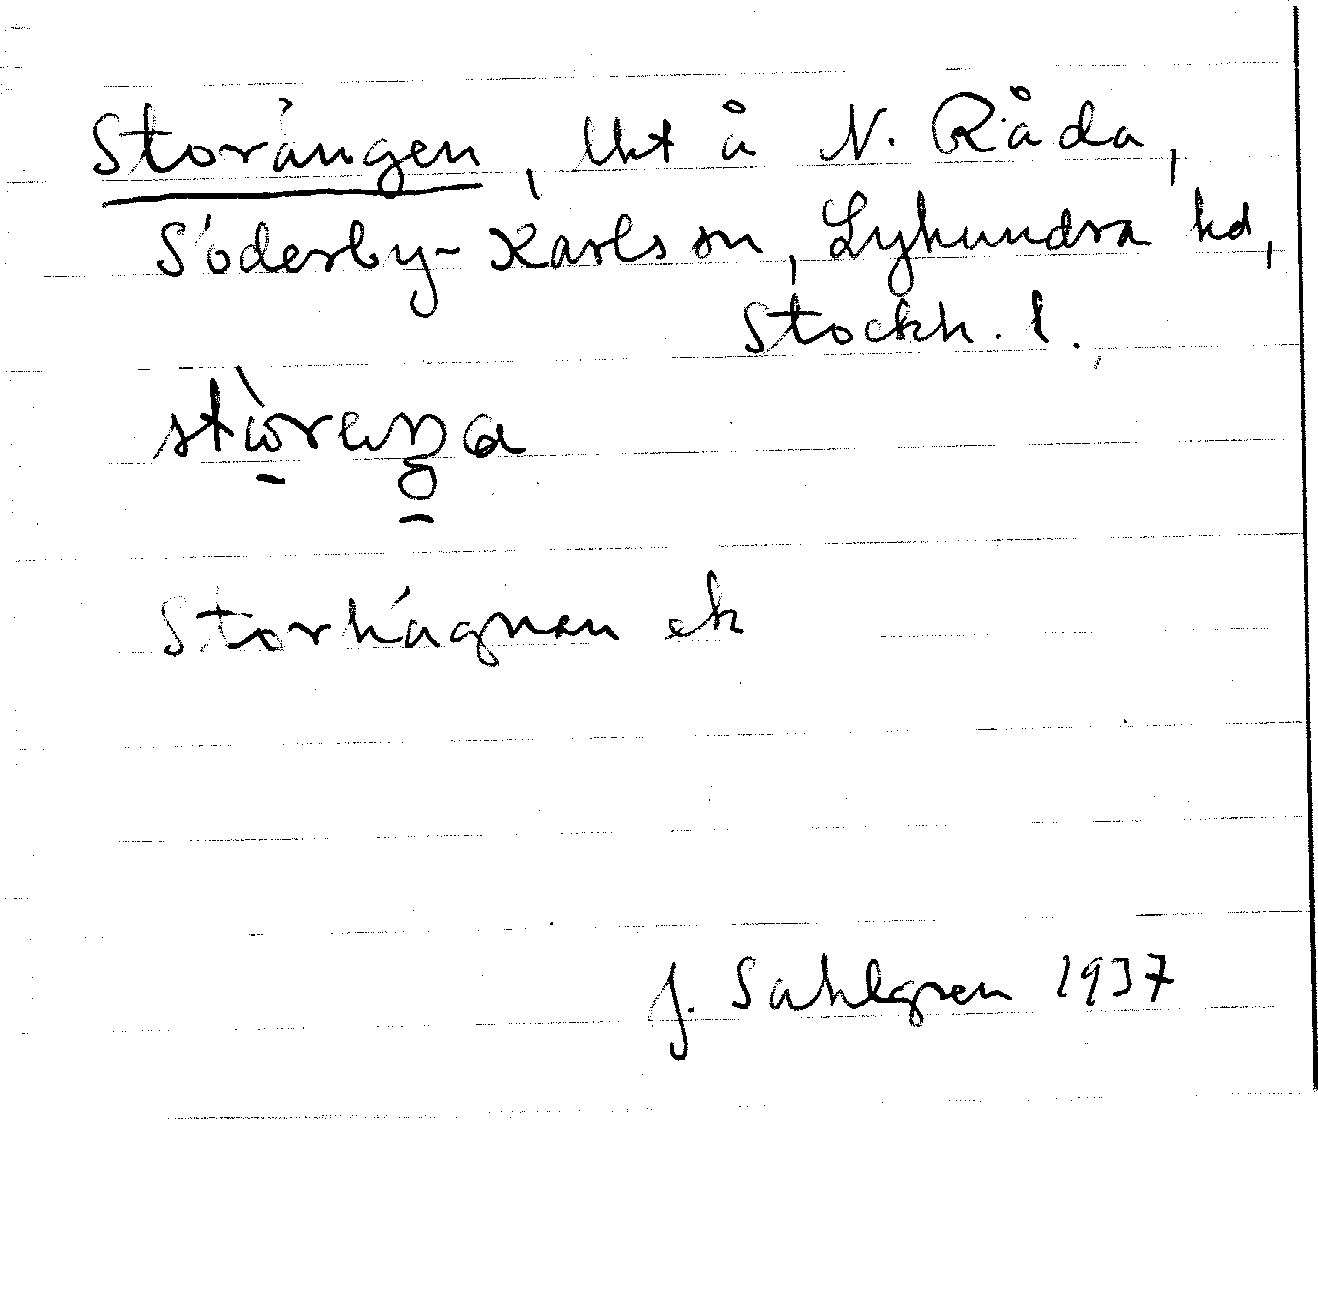 Storängen, lht å N. Råda,
Söderby-Karlson, Lyhundra hd,
Stockh. l.
Storhägnan ek
J. Sahlgren 1937